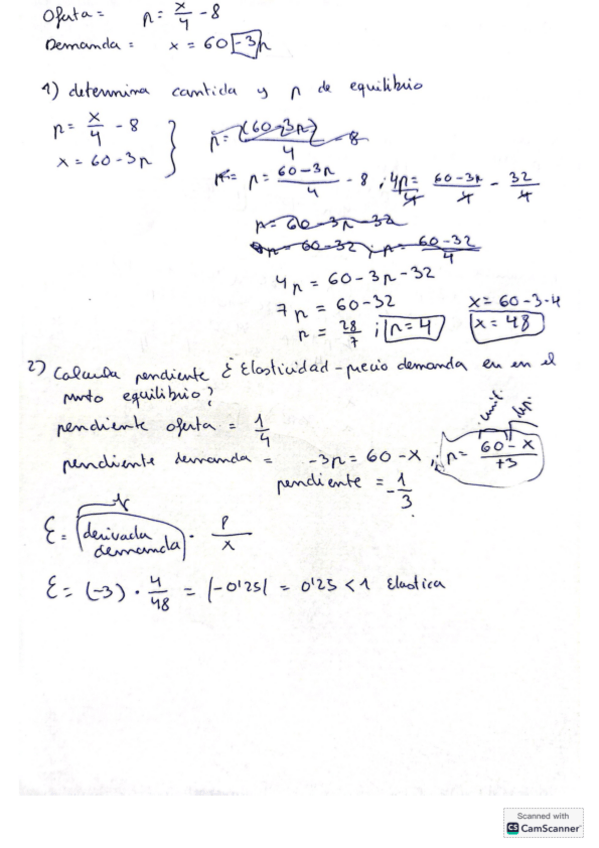 Oferta = p = x/4 - 8
Demanda = x = 60 - 3p
1) determina cantida y p de equilibrio
p = x/4 - 8
x = 60 - 3p
p = (60-3p)/4 - 8
p = p = 60-3p/4 - 8 ; 4p/4 = 60-3p/4 - 32/4
p = 60 - 3p - 32
p = 60-32 ; p = 60-32/4
4p = 60 - 3p - 32
7p = 60 - 32
p = 28/7 ; p = 4
x = 60 - 3·4
x = 48
2) Calcula pendiente É Elasticidad-precio demanda en en el
punto equilibrio?
pendiente oferta = 1/4
pendiente demanda = -3p = 60 - x ; p = 60 - x/+3
pendiente = -1/3
Ɛ = derivada demanda · P/x
Ɛ = (-3) · 4/48 = |-0'25| = 0'25 < 1 Elastica
Scanned with
CS CamScanner